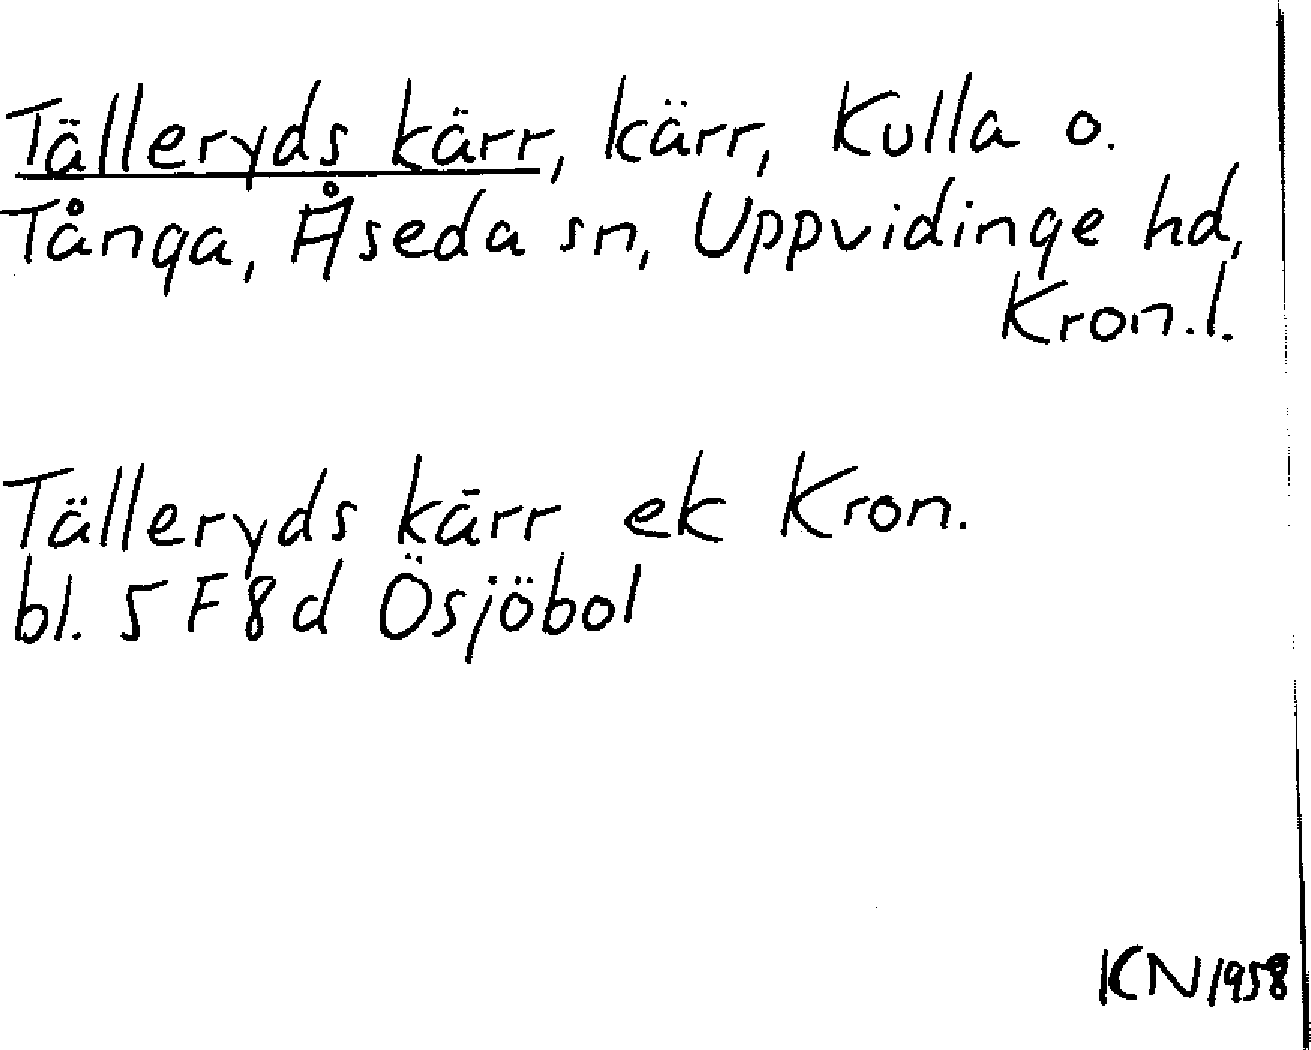 Tälleryds kärr, kärr, Kulla o.
Tånga, Åseda sn, Uppvidinge hd,
Kron.l.
Tälleryds kärr ek Kron.
bl. 5 F 8 d Ösjöbol
KN 1958